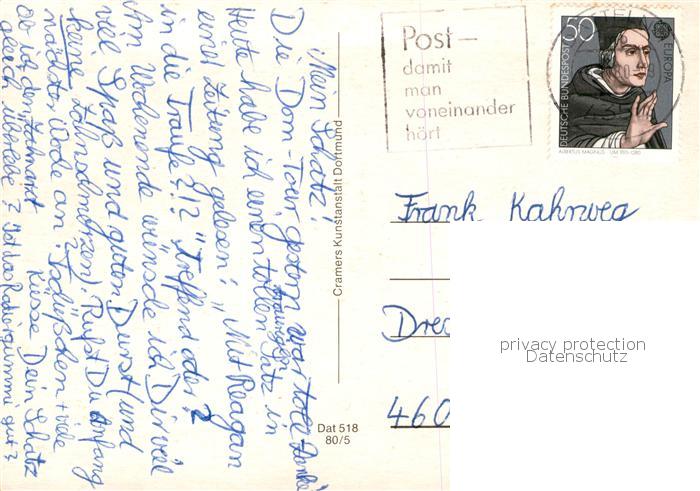 Mein Schatz!
Die Dom-Tour gestern war toll. Danke
Heute habe ich einen tollen traurigen Satz in
einer Zeitung gelesen: "Mit Reagan
in die Traufe"!? Treffend oder?
Am Wochenende wünsche ich Dir viel
viel Spaß und guten Durst (und
keine Zahnschmerzen). Rufst Du Anfang
nächster Woche an? Tschüßchen + viele
Küsse Dein Schatz
ob ich den Zahnarzt
gleich überlebe? Ist das Radiergummi gut?
Cramers Kunstanstalt Dortmund
Dat 518
80/5
Post –
damit
man
voneinander
hört
50
DEUTSCHE BUNDESPOST
EUROPA
ALBERTUS MAGNUS
Frank Kahnweg
460
privacy protection
Datenschutz